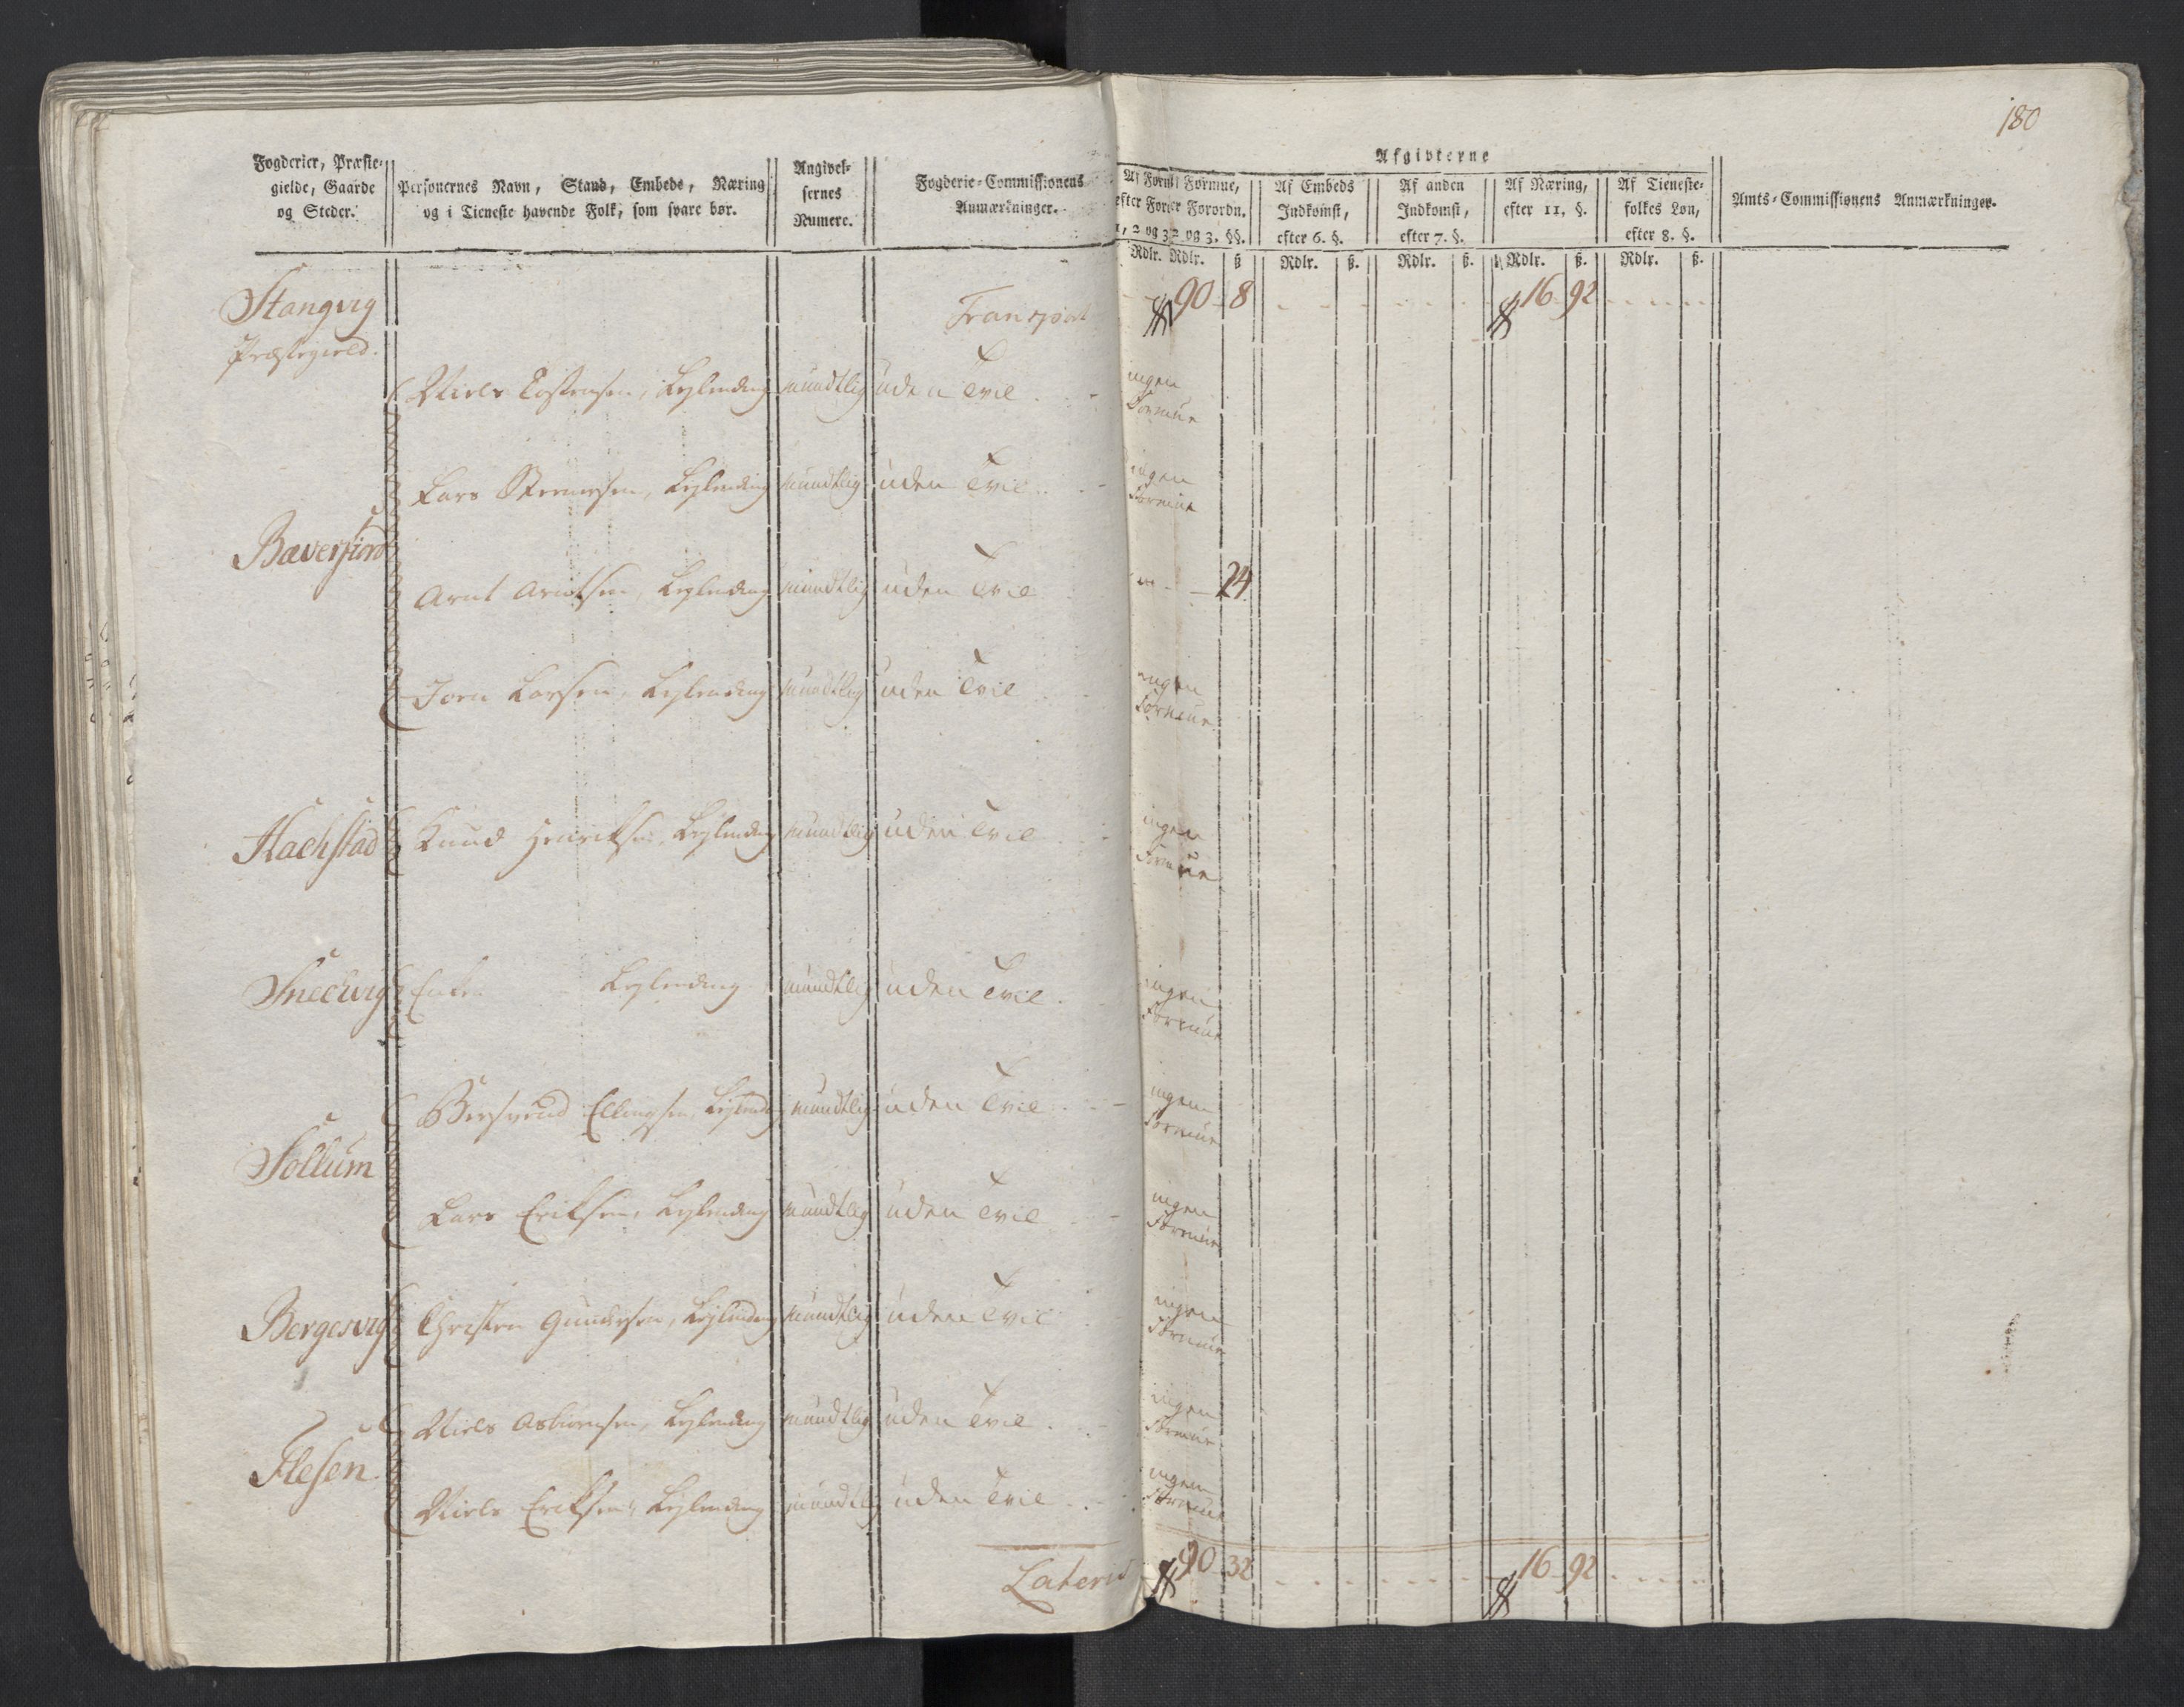 180
Fogderier, Præste-
gielde, Gaarde
og Steder.
Personernes Navn, Stand, Embede, Næring
og i Tieneste havende Folk, som svare bør.
Angivel-
sernes
Numere.
Fogderie-Commissionens
Anmærkninger.
Afgivterne
Af Formue,
efter Forordn.
1, 2 og 3. §§.
Af Embeds
Indkomst,
efter 6. §.
Af anden
Indkomst,
efter 7. §.
Af Næring,
efter 11. §.
Af Tieneste-
folkes Løn,
efter 8. §.
Amts-Commissionens Anmærkninger.
Rdlr. ß. Rdlr. ß. Rdlr. ß. Rdlr. ß. Rdlr. ß.
Stangvig
Præstegield.
Transport 90 8 16 92
Niels Tostensen, Leylending mundtlig uden Tvil ingen
Formue
Lars Leylending mundtlig uden Tvil ingen
Formue
Bæverfiord
Arnt Arntsen, Leylending mundtlig uden Tvil 24
Joen Larsen, Leylending mundtlig uden Tvil ingen
Formue
Hachstad Knud Henriksen, Leylending mundtlig uden Tvil ingen
Formue
Snechvig Enken Leylending mundtlig uden Tvil ingen
Formue
Bersvend Ellingsen, Leylending mundtlig uden Tvil ingen
Formue
Sollum
Lars Eriksen, Leylending mundtlig uden Tvil ingen
Formue
Bergesvig Christen Gundersen, Leylending mundtlig uden Tvil ingen
Formue
Niels Asbiørnsen, Leylending mundtlig uden Tvil ingen
Formue
Flesen
Niels Eriksen, Leylending mundtlig uden Tvil ingen
Formue
Lateris 90 32 16 92